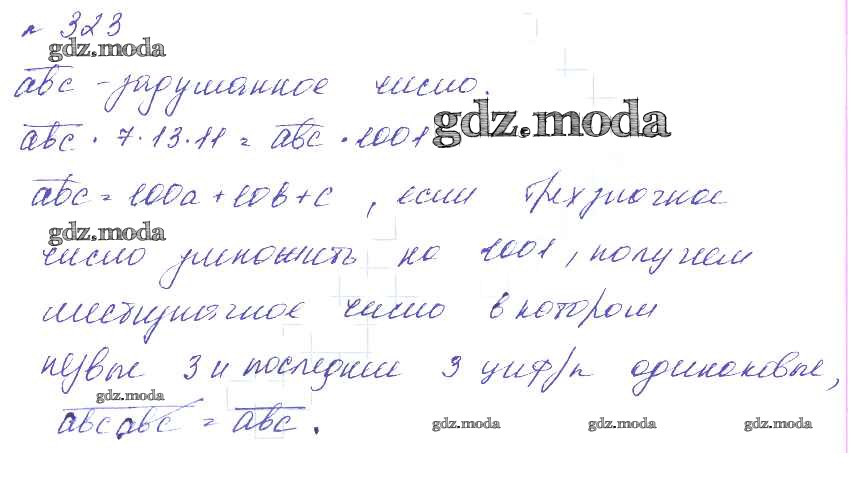 № 323
gdz.moda
abc - задуманное число.
abc · 7 · 13 · 11 = abc · 1001
gdz.moda
abc = 100a + 10b + c, если трехзначное
gdz.moda
число умножить на 1001, получаем
шестизначное число в котором
первые 3 и последние 3 цифры одинаковые,
gdz.moda
abcabc = abc.
gdz.moda gdz.moda gdz.moda